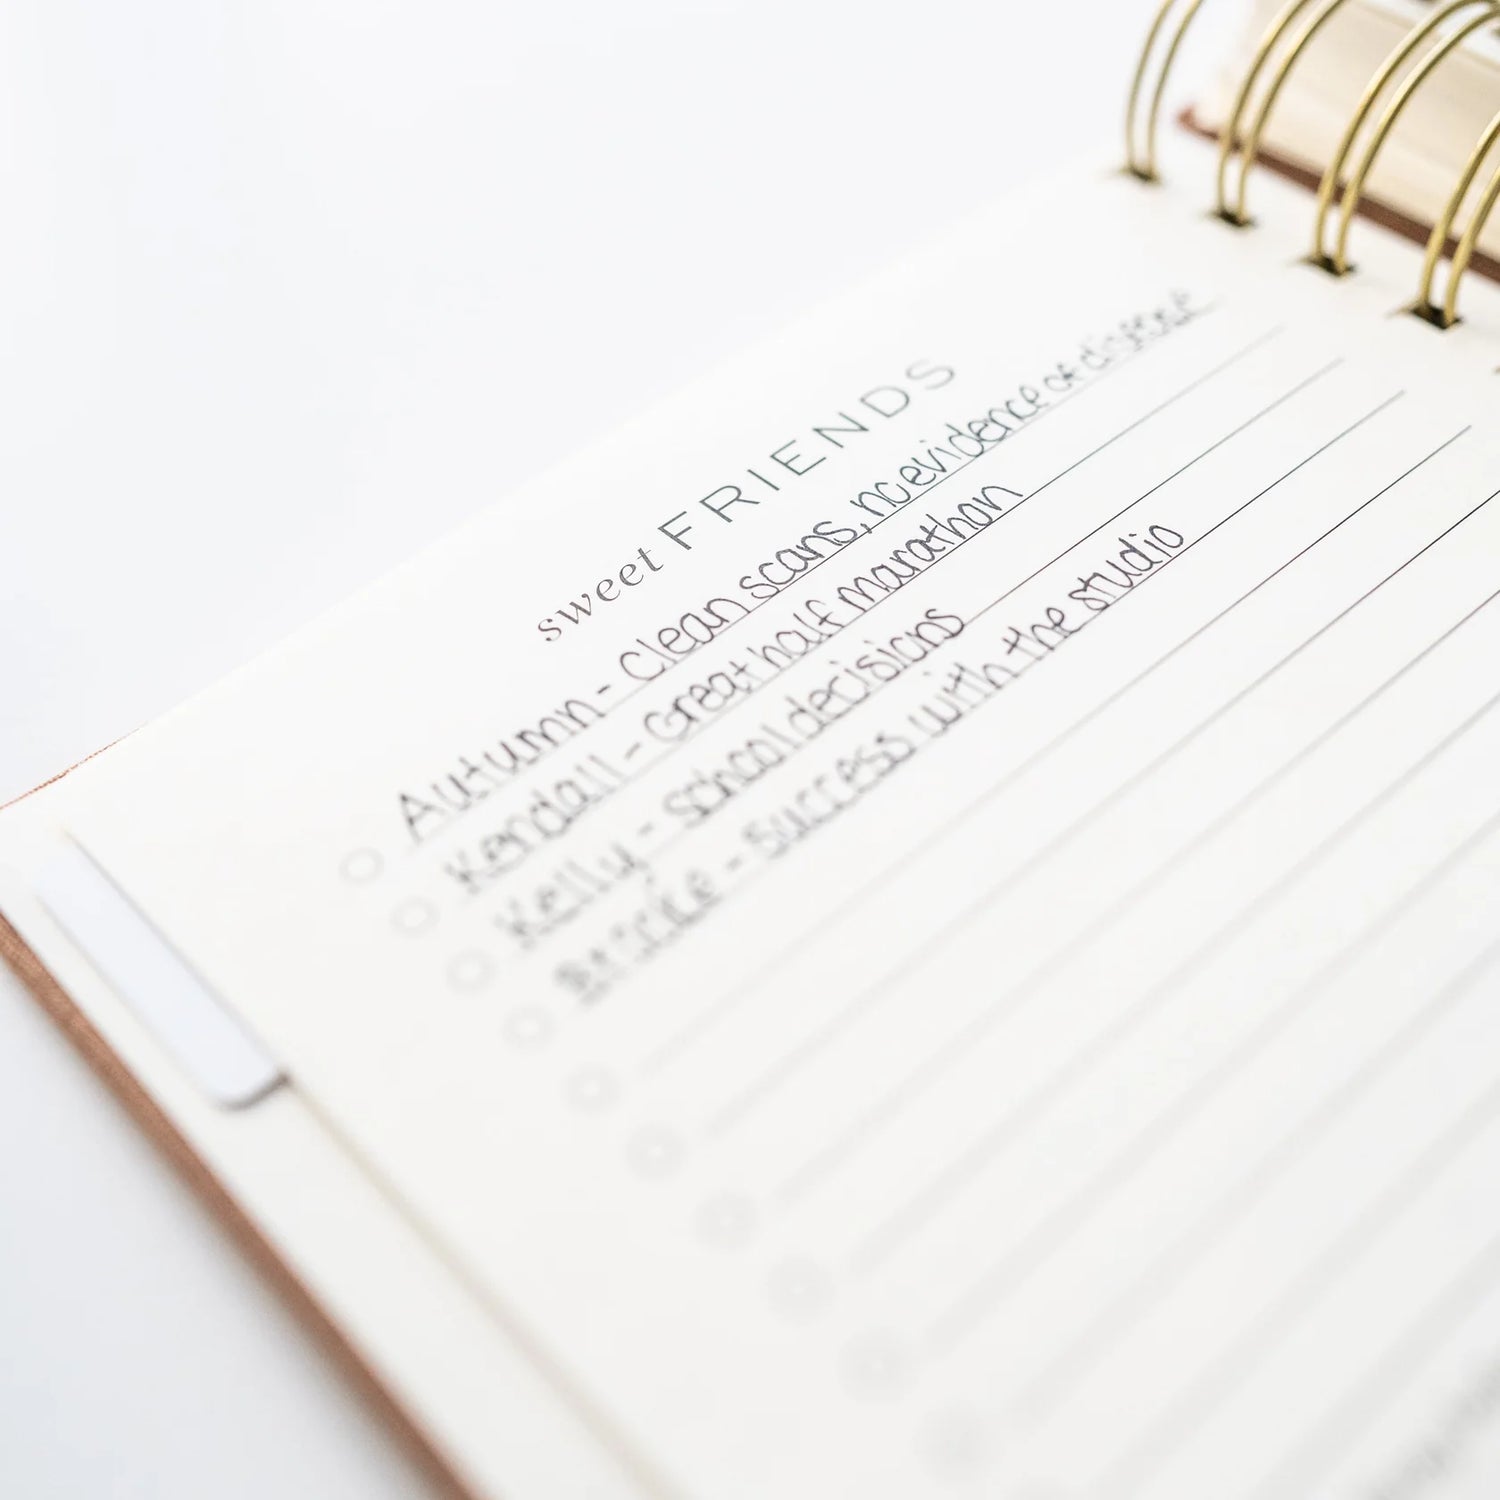 sweet FRIENDS
Autumn - Clean scans, no evidence of disease
Kendall - Great half marathon
Kelly - School decisions
- Success with the studio